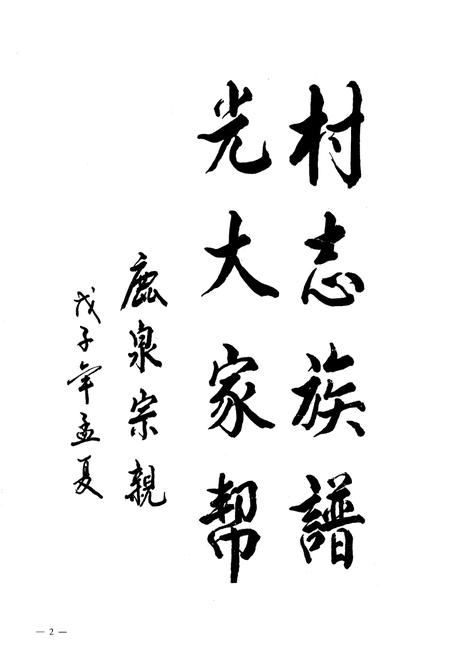 村志族譜
光大家幫
鹿泉宗親
戊子年孟夏
— 2 —